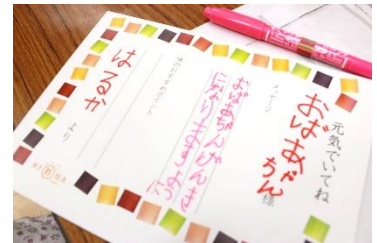 元気でいてね
おばあちゃん様
メッセージ
おばあちゃんげんき
になりますように
はるか
より